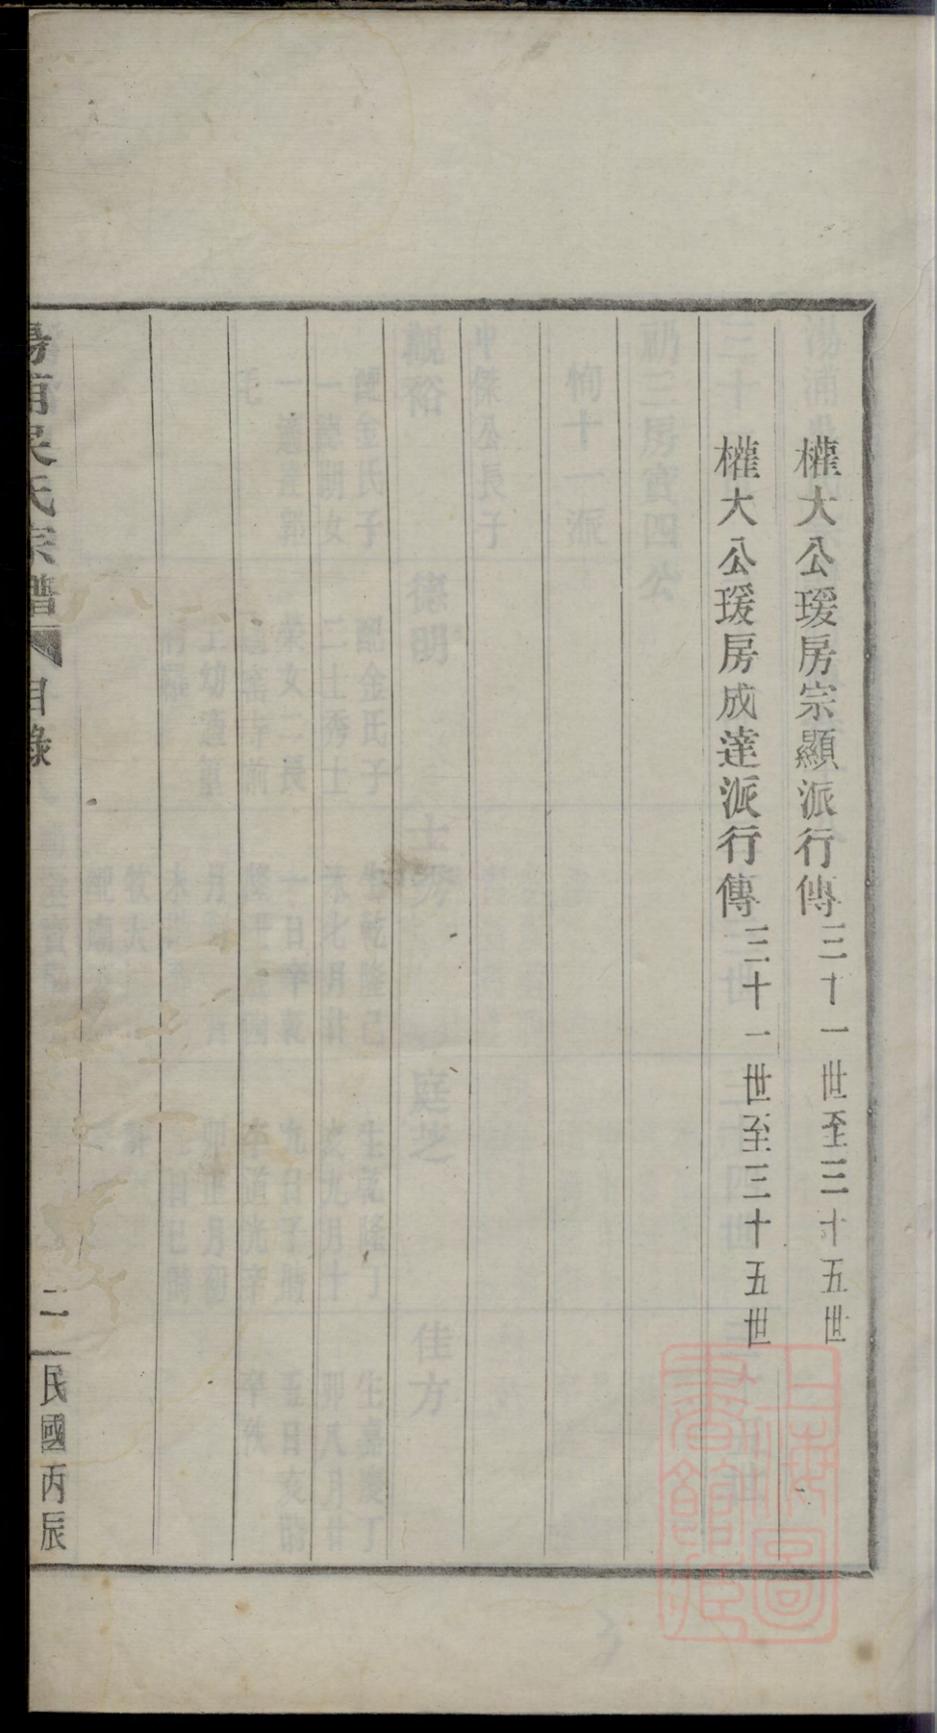 權大公瑗房宗顯派行傳三十一世至三十五世
權大公瑗房成達派行傳三十一世至三十五世
湯浦吳氏宗譜
目錄
二
民國丙辰